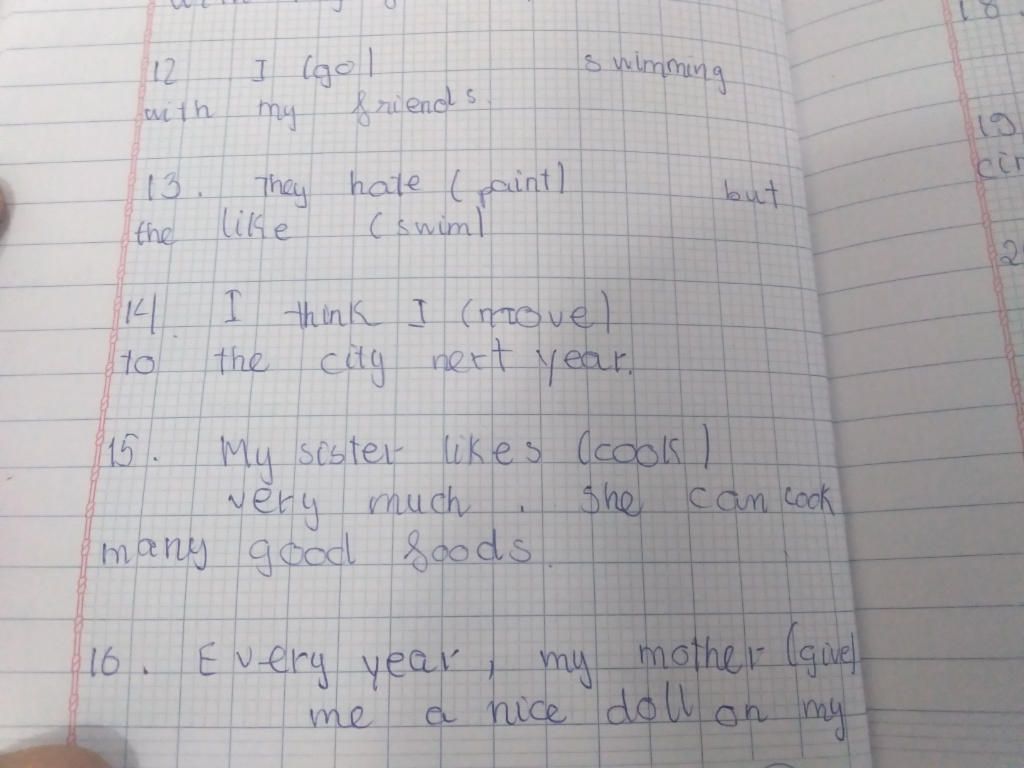 12 I (go) swimming
with my friends.
13. They hate (paint) but
the like (swim)
14. I think I (move)
to the city next year.
15. My sister likes (cook)
very much. She can cook
many good foods.
16. Every year, my mother (give)
me a nice doll on my
18.
19